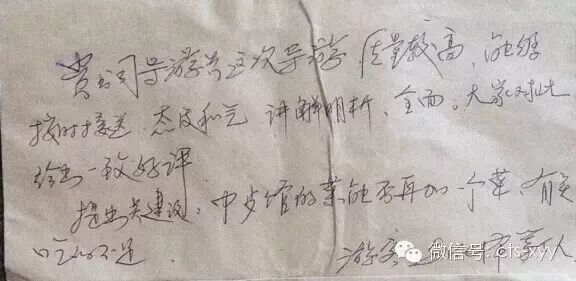 贵公司导游员这次导游 质量较高,能够
按时接送 态度和气 讲解明晰、全面。大家对此
给出一致好评
提出点建议:中午馆的菜能否再加一个菜 有点
吃的不足
游客
微信号:ctsxyy